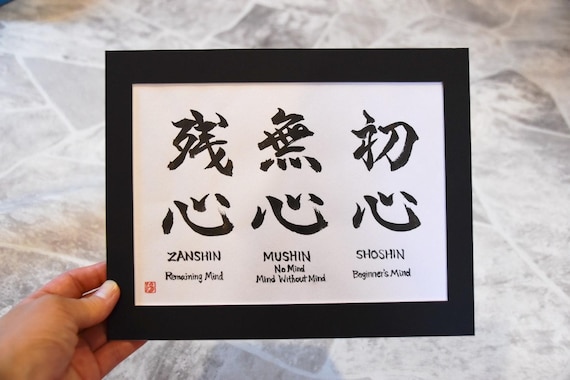 残心
無心
初心
ZANSHIN
Remaining Mind
MUSHIN
No Mind
Mind Without Mind
SHOSHIN
Beginner's Mind